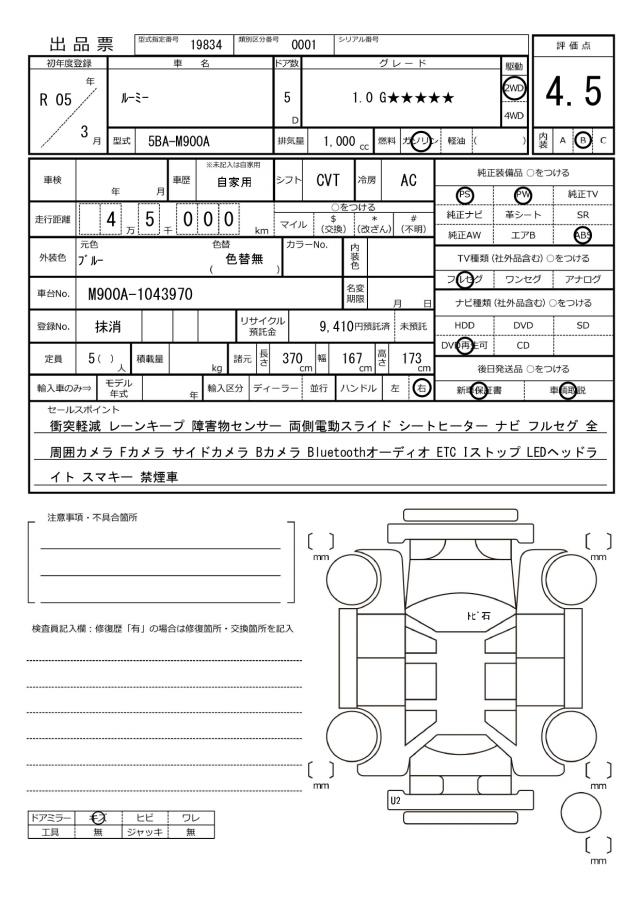 出品票 型式指定番号 19834 類別区分番号 0001 シリアル番号
評価点
4.5
内装 A B C
初年度登録 車名 ドア数 グレード 駆動
R 05 年 3 月 ルーミー 5 D 1.0 G★★★★★ 2WD 4WD
型式 5BA-M900A 排気量 1,000 cc 燃料 ガソリン 軽油 ( )
車検 年 月 車歴 ※未記入は自家用 自家用 シフト CVT 冷房 AC
走行距離 4 万 5 千 0 0 0 km ○をつける
マイル $(交換) *(改ざん) #(不明)
外装色 元色 ブルー 色替 ( 色替無 ) カラーNo. 内装色
車台No. M900A-1043970 名変期限 月 日
登録No. 抹消 リサイクル預託金 9,410円預託済 未預託
定員 5 ( ) 人 積載量 kg 諸元 長さ 370 cm 幅 167 cm 高さ 173 cm
輸入車のみ⇒ モデル年式 年 輸入区分 ディーラー 並行 ハンドル 左 右
純正装備品 ○をつける
PS PW 純正TV
純正ナビ 革シート SR
純正AW エアB ABS
TV種類 (社外品含む) ○をつける
フルセグ ワンセグ アナログ
ナビ種類 (社外品含む) ○をつける
HDD DVD SD
DVD再生可 CD
後日発送品 ○をつける
新車保証書 車輌取説
セールスポイント
衝突軽減 レーンキープ 障害物センサー 両側電動スライド シートヒーター ナビ フルセグ 全
周囲カメラ Fカメラ サイドカメラ Bカメラ Bluetoothオーディオ ETC Iストップ LEDヘッドラ
イト スマキー 禁煙車
注意事項・不具合箇所
検査員記入欄:修復歴「有」の場合は修復箇所・交換箇所を記入
ドアミラー キズ ヒビ ワレ
工具 無 ジャッキ 無
〔 〕mm
〔 〕mm
トビ石
〔 〕mm
〔 〕mm
U2
〔 〕mm